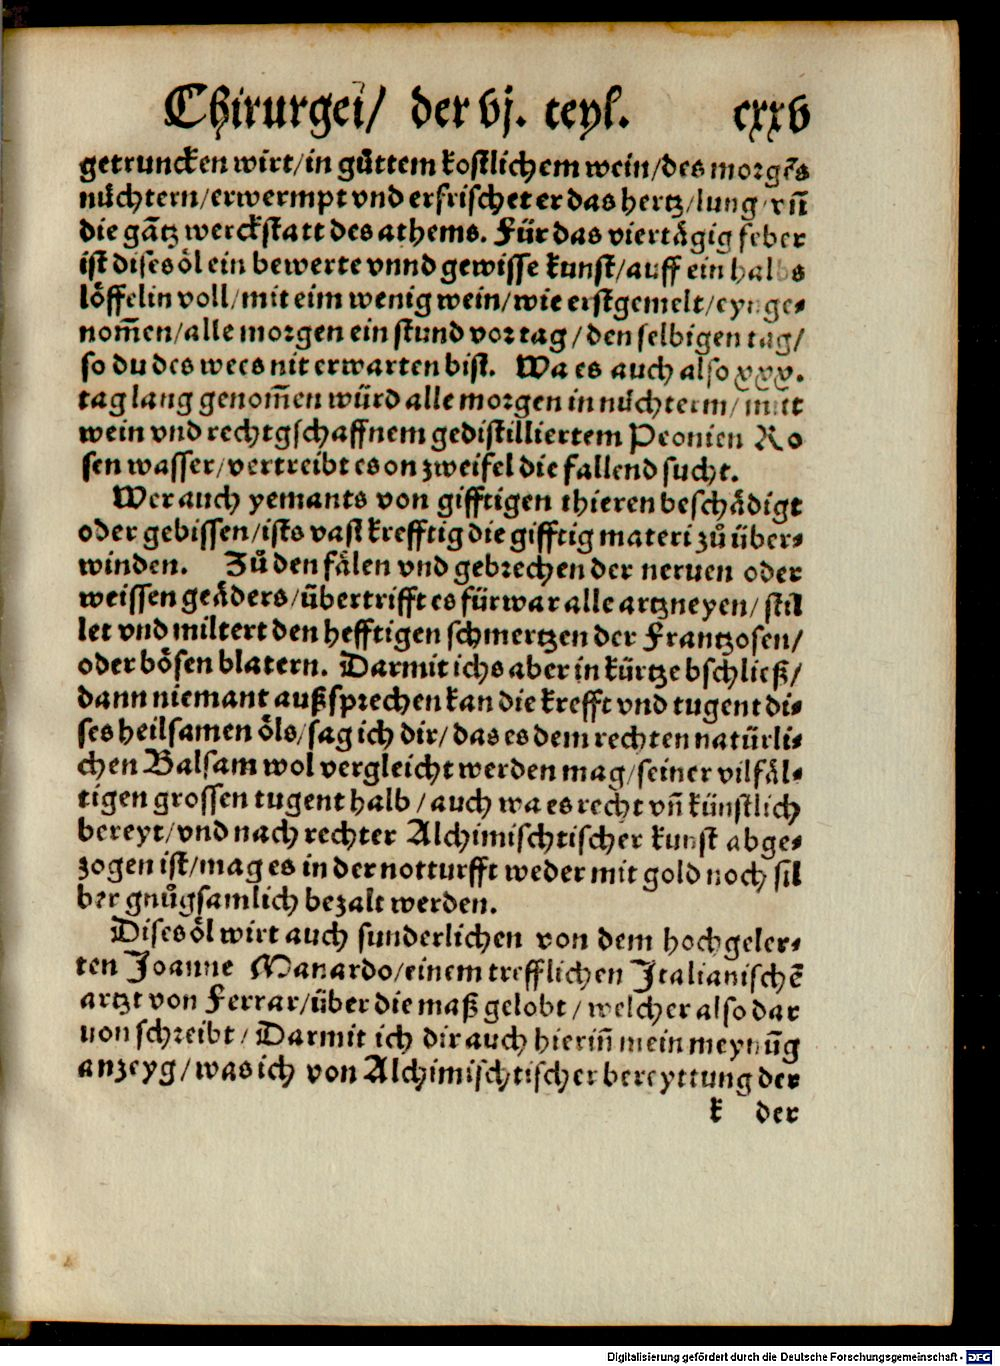 Chirurgei/ der vj. teyl. cxxv
getruncken wirt/in gůttem kostlichem wein/des morgẽs
nůchtern/erwermpt vnd erfrischet er das hertz/lung/vñ
die gãtz werckstatt des athems. Für das viertägig feber
ist dises öl ein bewerte vnnd gewisse kunst/auff ein halbs
löffelin voll/mit eim wenig wein/wie erstgemelt/eynge-
nom̃en/alle morgen ein stund vor tag/den selbigen tag/
so du des wees nit erwarten bist. Wa es auch also xxx.
tag lang genom̃en würd alle morgen in nůchterm/mitt
wein vnd rechtgschaffnem gedistilliertem Peonien Ro
sen wasser/vertreibt es on zweifel die fallend sucht.
Wer auch yemants von gifftigen thieren beschädigt
oder gebissen/ists vast krefftig die gifftig materi zů über-
winden. Zů den fälen vnd gebrechen der neruen oder
weissen geäders/übertrifft es fürwar alle artzneyen/stil
let vnd miltert den hefftigen schmertzen der Frantzosen/
oder bösen blatern. Darmit ichs aber in kürtze bschließ/
dann niemant außsprechen kan die krefft vnd tugent di-
ses heilsamen öls/sag ich dir/das es dem rechten natürli-
chen Balsam wol vergleicht werden mag/seiner vilfäl-
tigen grossen tugent halb/auch wa es recht vñ künstlich
bereyt/vnd nach rechter Alchimischtischer kunst abge-
zogen ist/mag es in der notturfft weder mit gold noch sil
ber gnůgsamlich bezalt werden.
Dises öl wirt auch sunderlichen von dem hochgeler-
ten Joanne Manardo/einem trefflichen Italianischẽ
artzt von Ferrar/über die maß gelobt/welcher also dar
uon schreibt/Darmit ich dir auch hieriñ mein meynũg
anzeyg/was ich von Alchimischtischer bereyttung der
k der
Digitalisierung gefördert durch die Deutsche Forschungsgemeinschaft - DFG